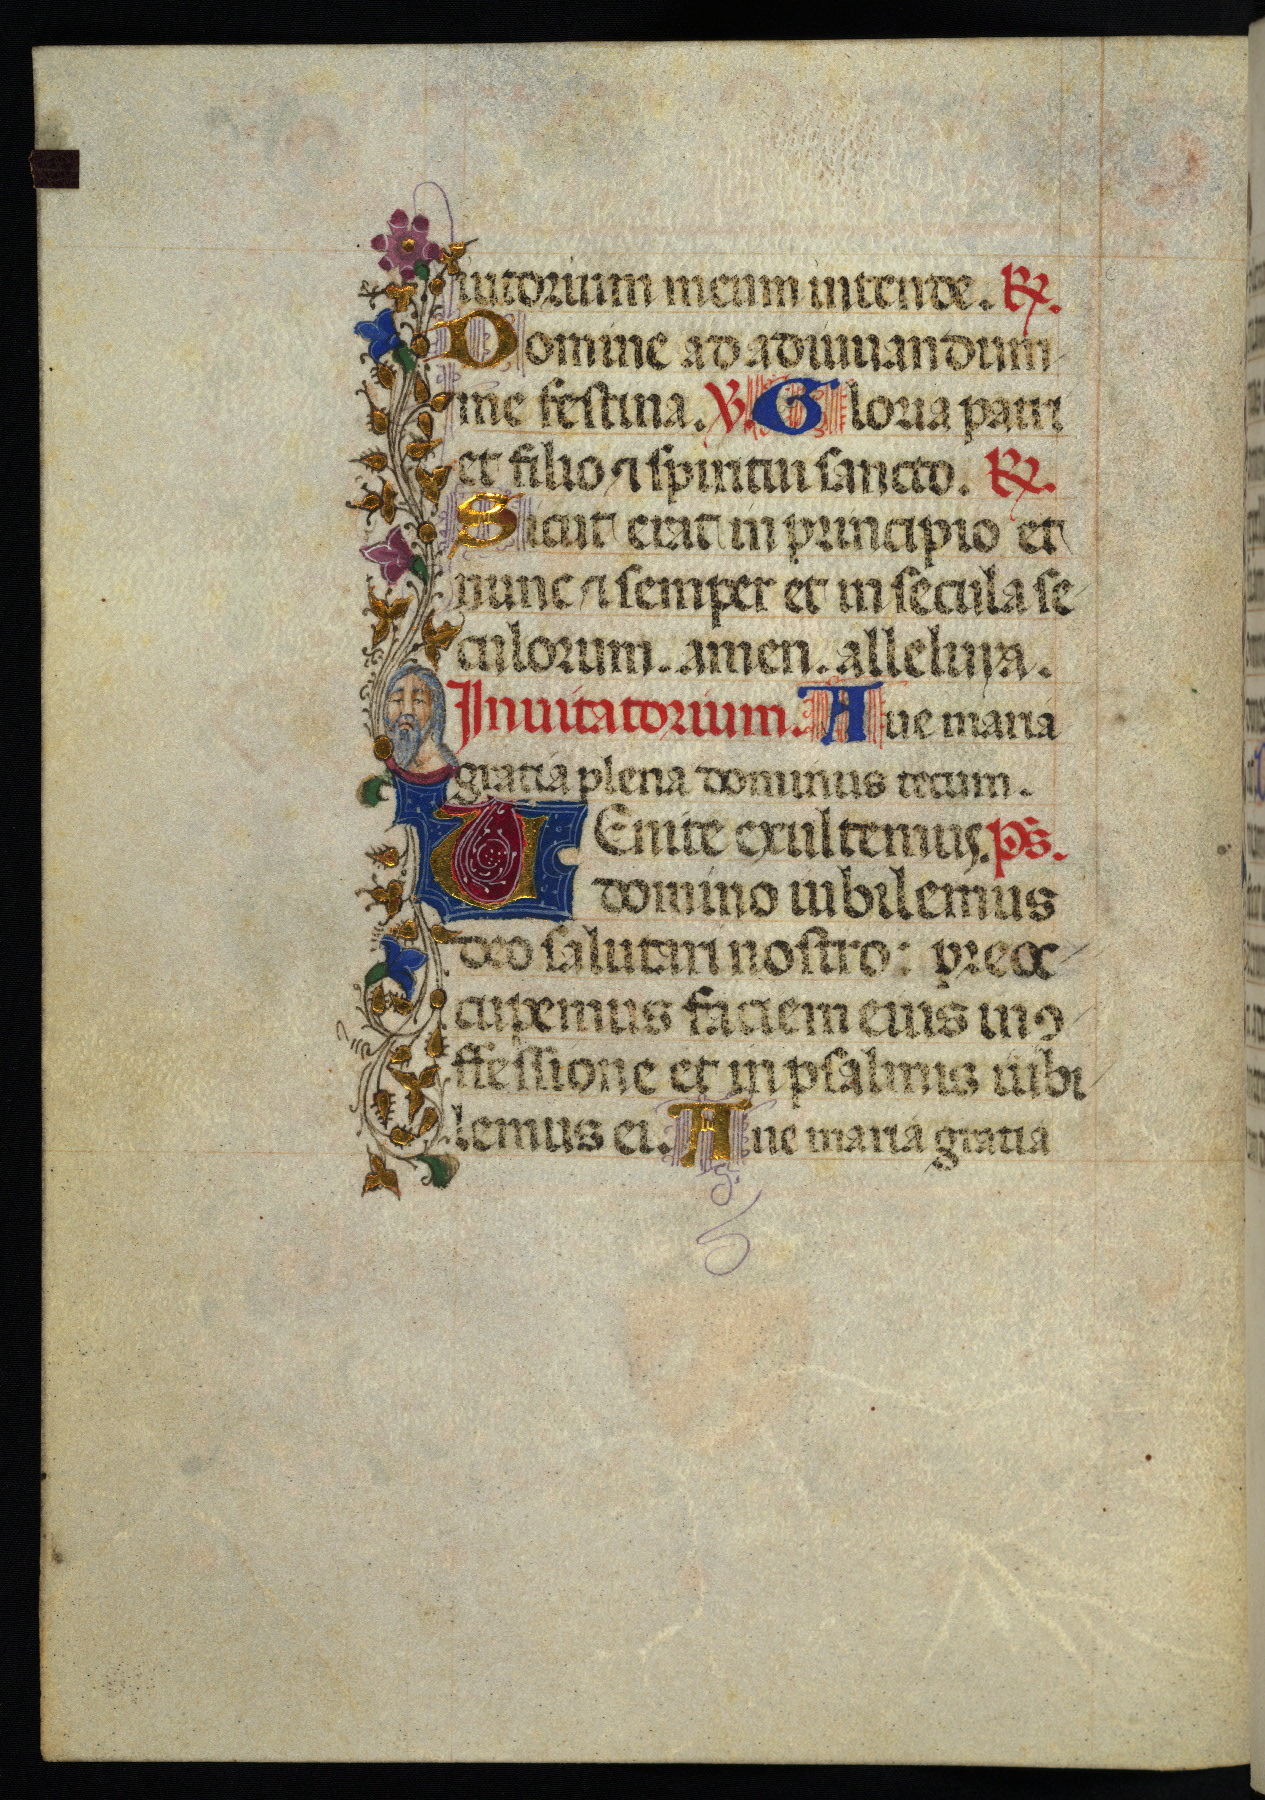 iutorium meum intende. ℟.
Domine ad adiuuandum
me festina. ℣. Gloria patri
et filio ⁊ spiritui sancto. ℟.
Sicut erat in principio et
nunc ⁊ semper et in secula se
culorum. amen. alleluya.
Inuitatorium. Aue maria
gratia plena dominus tecum.
UEnite exultemus. ps.
domino iubilemus
deo salutari nostro: preoc
cupemus faciem eius in ꝯ
ffessione et in psalmis iubi
lemus ei. Aue maria gratia